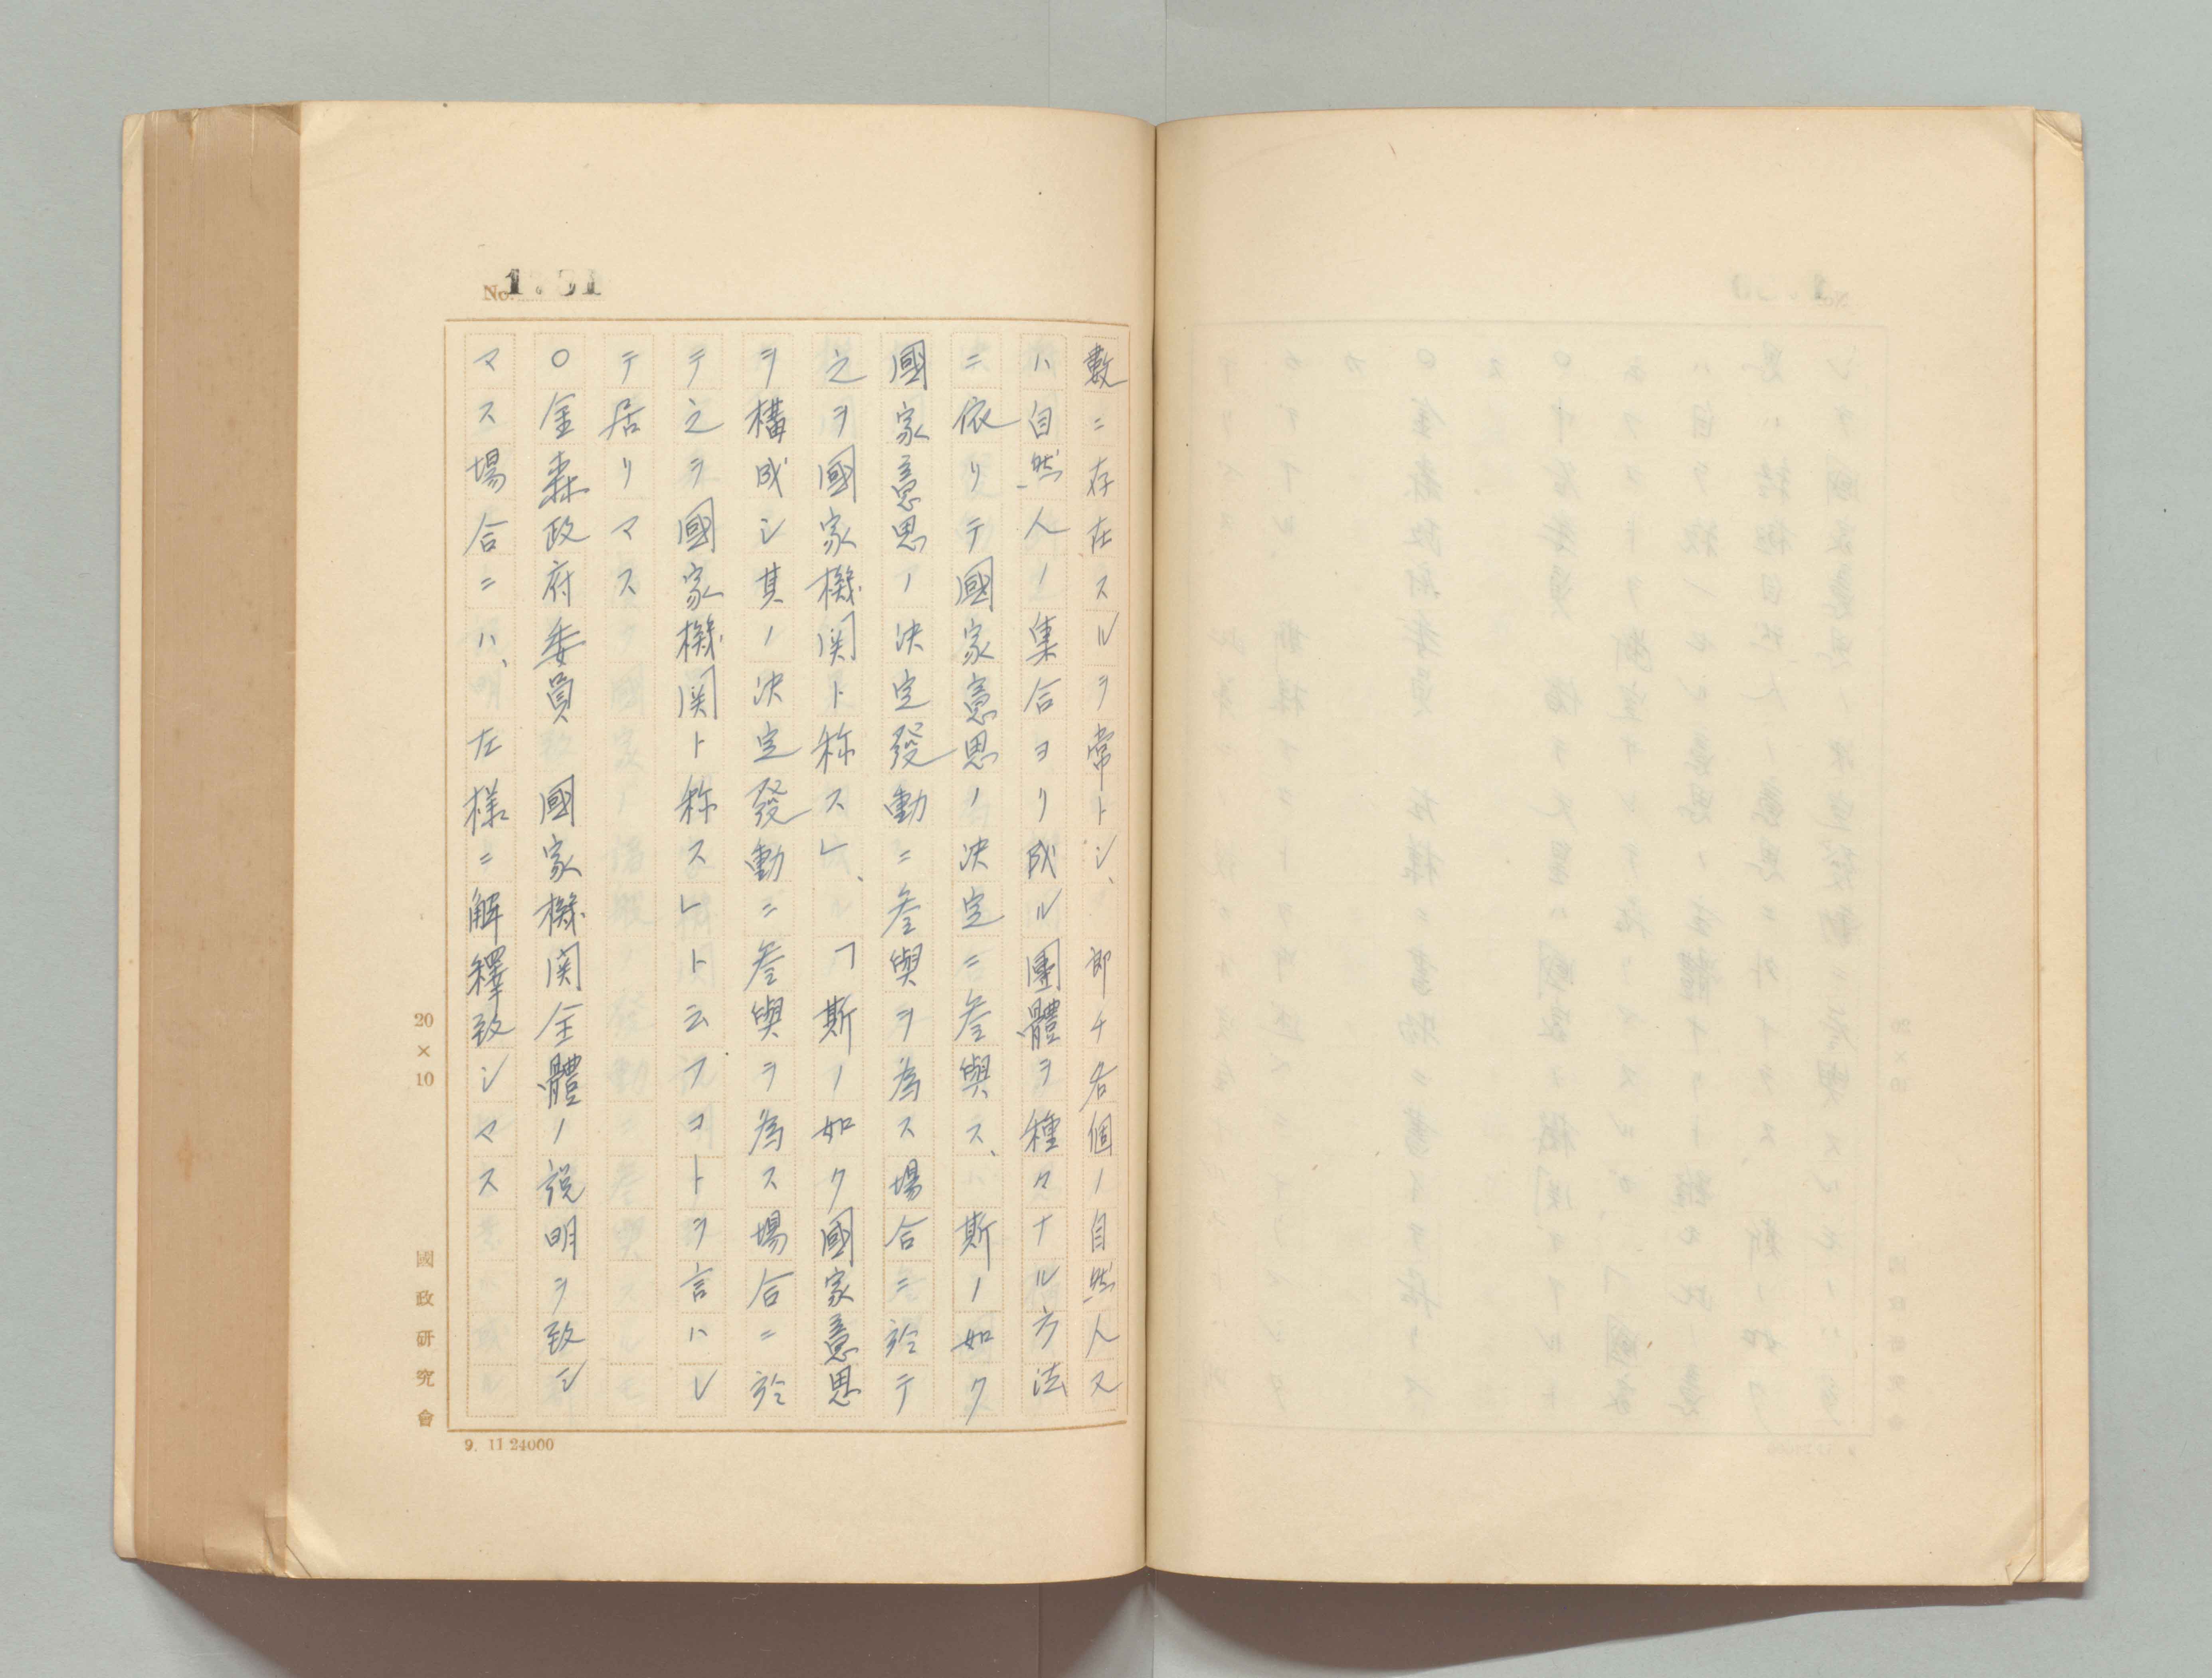 No.
數ニ存在スルヲ常トシ、卽チ各個ノ自然人又
ハ自然人ノ集合ヨリ成ル團體ヲ種々ナル方法
ニ依リテ國家意思ノ決定ニ參與ス、斯ノ如ク
國家意思ノ決定發動ニ參與ヲ為ス場合ニ於テ
之ヲ國家機関ト称ス」、「斯ノ如ク國家意思
ヲ構成シ其ノ決定發動ニ參與ヲ為ス場合ニ於
テ之ヲ國家機関ト称ス」ト云フコトヲ言ハレ
テ居リマス
○金森政府委員 國家機関全體ノ説明ヲ致シ
マス場合ニハ、左様ニ解釋致シマス
20×10
國政研究會
9. 11.24000